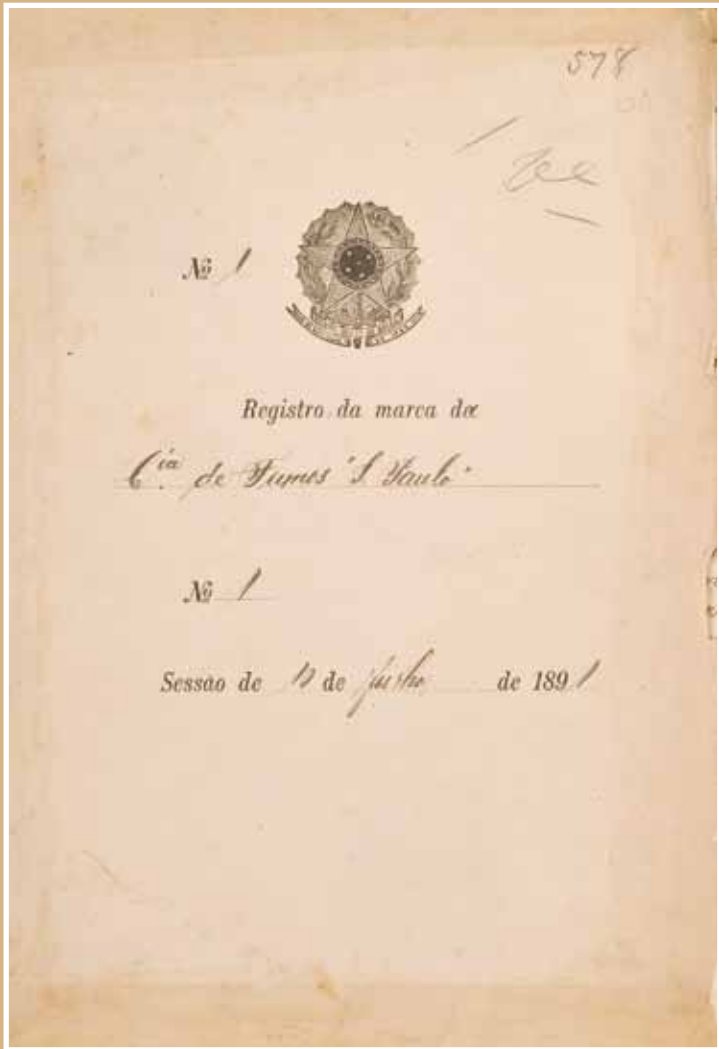 578
Nº 1
Registro da marca da
Cia de Fumos "S. Paulo"
Nº 1
Sessão de de Junho de 1891